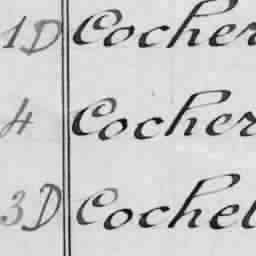 1D Cocher
4 Cocher
3D Cochet